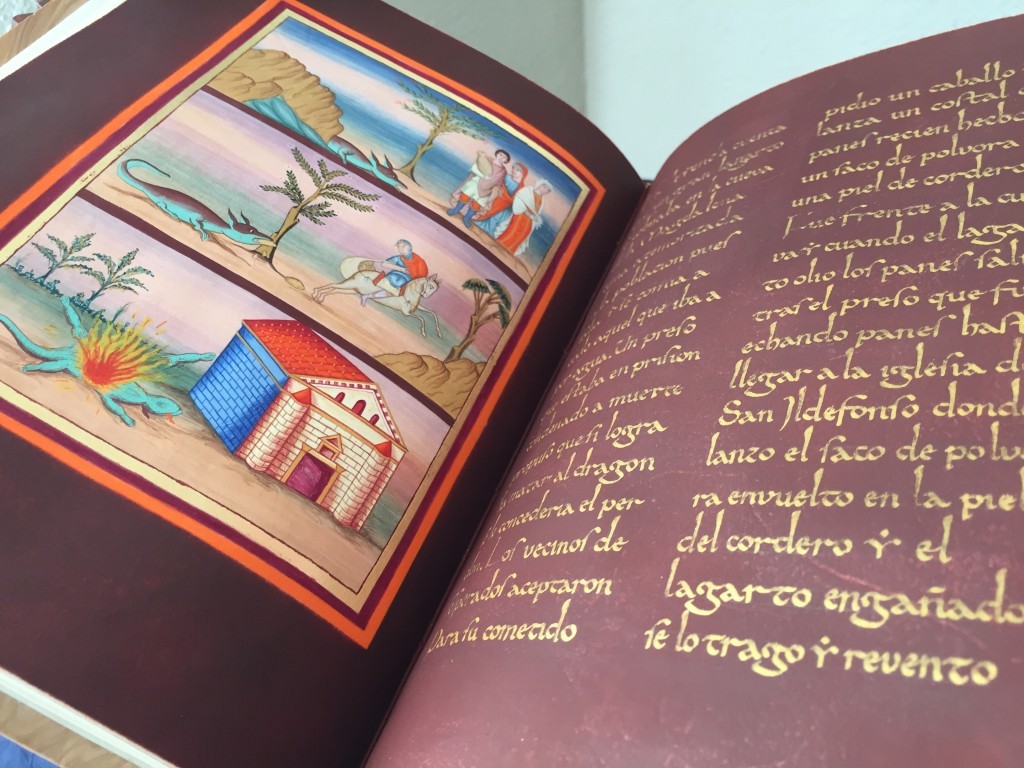 cuenta
gran lagarto
la cueva
poblacion pues
comia a
aquel que iba a
agua. Un preso
estaba en prision
a muerte
que si logra
matar al dragon
concederia el per
Los vecinos de
aceptaron
Para su cometido
pidio un caballo
lanza un costal
panes recien hecho
un saco de polvora
una piel de cordero
Fue frente a la cue
va y cuando el lagar
to olio los panes sali
tras el preso que fu
echando panes hast
llegar a la iglesia de
San Ildefonso dond
lanzo el saco de polvo
ra envuelto en la piel
del cordero y el
lagarto engañado
se lo trago y revento